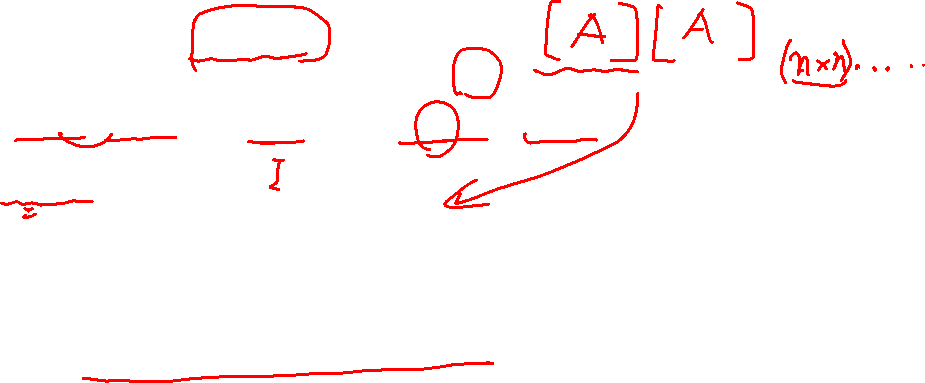 [A] [A]
(n×n).....
I